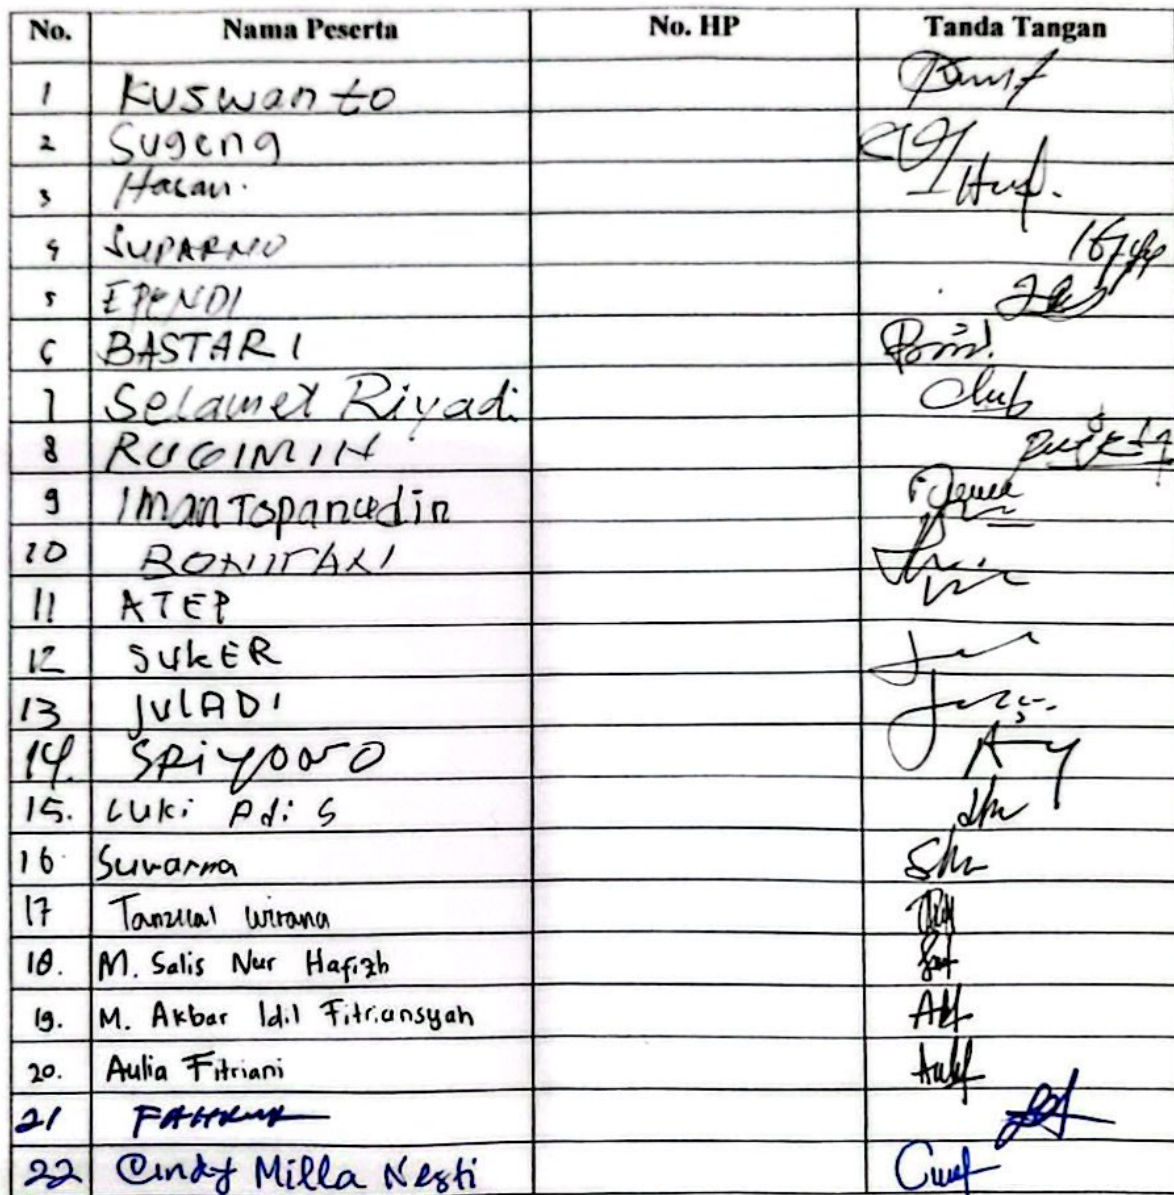 No. Nama Peserta No. HP Tanda Tangan
1 Kuswanto
2 Sugeng
3 Hasan.
4 SUPARNO
5 EPENDI
6 BASTARI
7 Selamet Riyadi
8 RUGIMIN
9 Iman Topanudin
10
11 ATEP
12 SUKER
13 JULADI
14. SRiyono
15. Luki Adi S
16. Suvarna
17 Wirana
18. M. Salis Nur Hafizh
19. M. Akbar Idil Fitriansyah
20. Aulia Fitriani
21
22 Cindy Milla Nesti